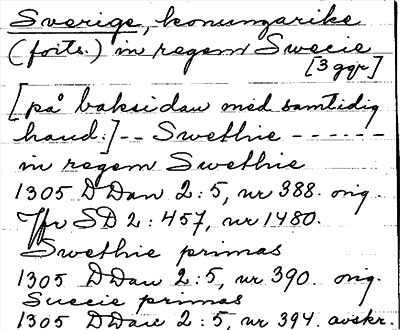 Sverige, konungarike
(forts.) in regem Swecie
[3 ggr]
[på baksidan med samtidig
hand:] -- Swethie ------
in regem Swethie
1305 DDan 2:5, nr 388. orig.
Jfr SD 2:457, nr 1480.
Swethie primas
1305 DDan 2:5, nr 390. orig.
Suecie primas
1305 DDan 2:5, nr 394. avskr.